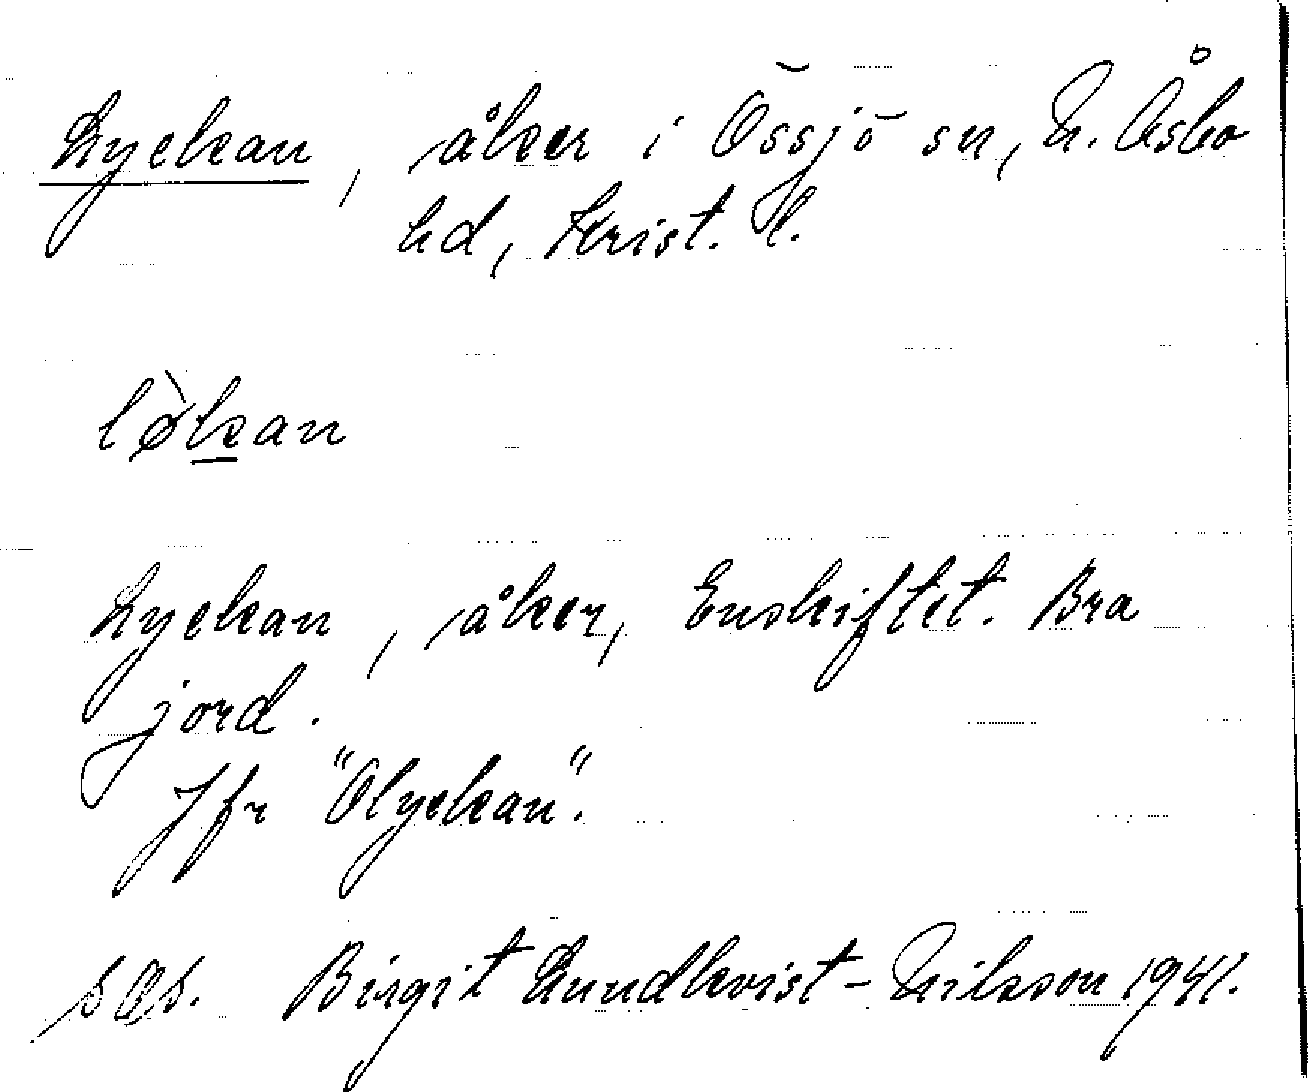 Lyckan, åker i Össjö sn, N. Åsbo
hd, Krist. l.
lø̀kan
Lyckan, åker, Enskiftet. Bra
jord.
Jfr "Olyckan".
Birgit Lundkvist-Nilsson 1941.